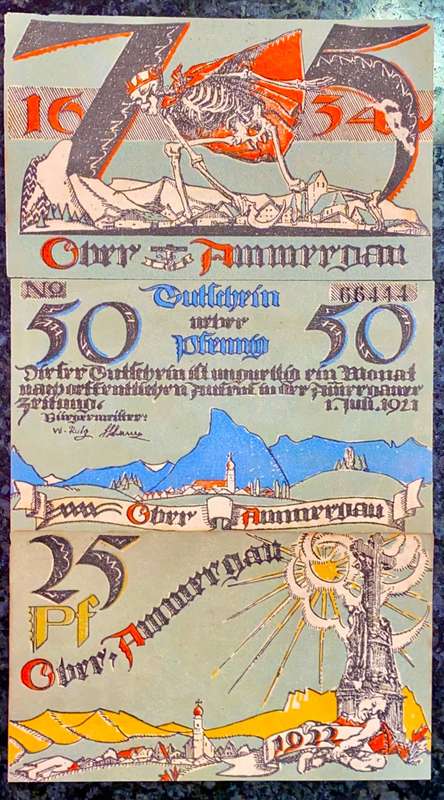 75
1634
Ober Ammergau
No 66444
50 Gutschein 50
ueber
Pfennig
Dieser Gutschein ist ungueltig ein Monat
nach oeffentlichen Aufruf in der Ammergauer
Zeitung. 1. Juli. 1921
Bürgermeister:
Ober Ammergau
25
Pf
Ober-Ammergau
1922